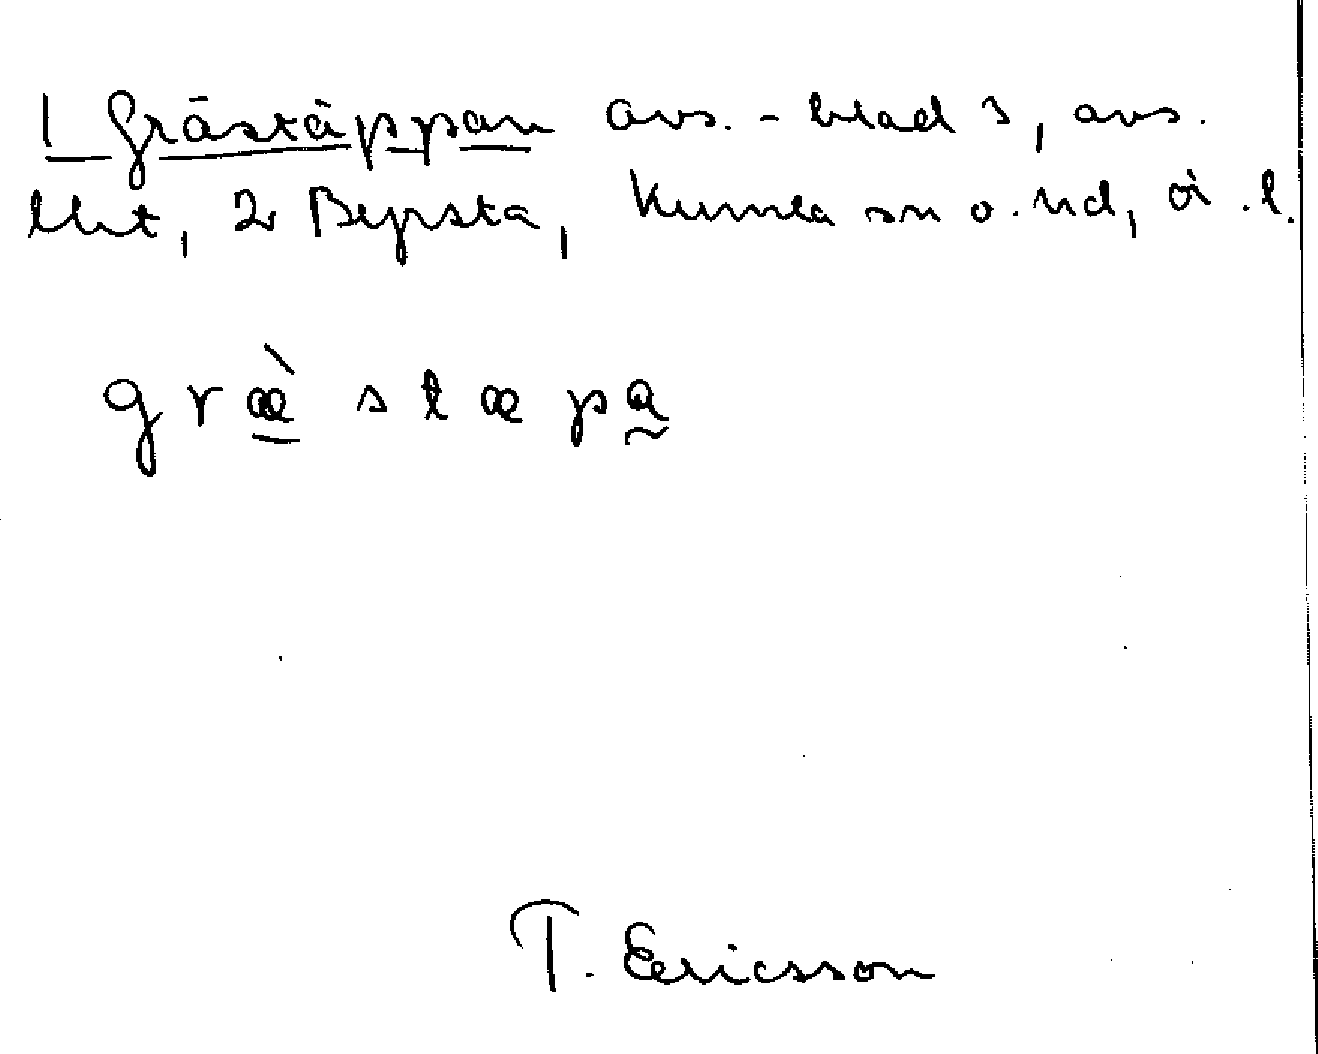 1 Grästäppan avs. - blad 3, avs.
lht, 2 Byrsta, Kumla sn o. hd, ö.l.
græ̀stæpa
T. Ericsson